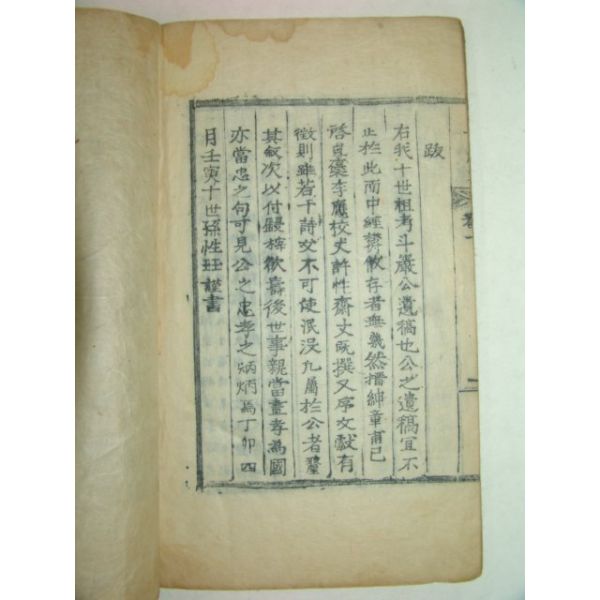 跋
右我十世祖考斗巖公遺稿也公之遺稿宜不
止於此而中經散存者無幾然搢紳章甫已
啓長李應校史許性齋文旣撰又序文獻有
徵則雖若干詩文不可使泯沒凡屬於公者釐
其叙次以付鋟梓欲壽後世事親當盡孝爲國
亦當忠之句可見公之忠孝之炳炳焉丁卯四
月壬寅十世孫性 謹書
卷一